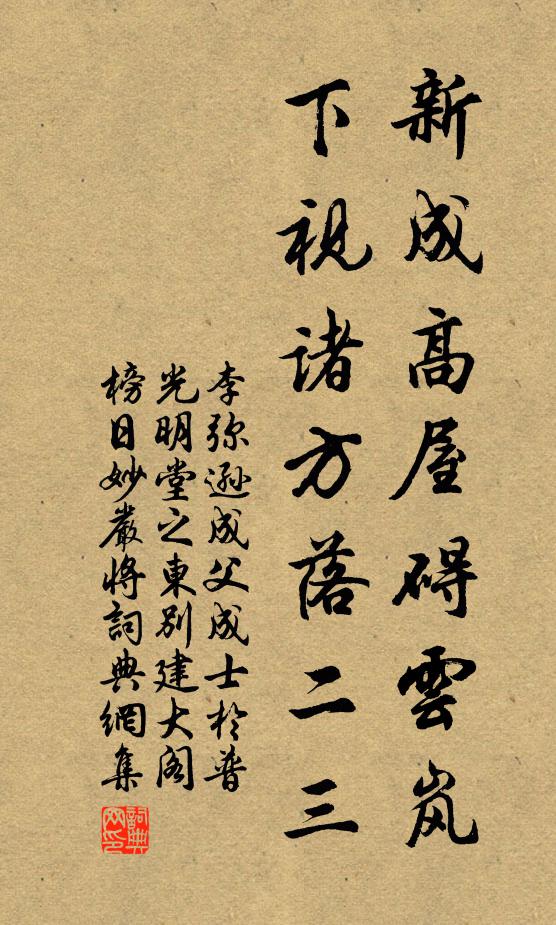 新成高屋碍雲岚
下視诸方落二三
李弥遜成父成士於普
光明堂之東别建大阁
榜日妙嚴将詞典網集
詞典网印